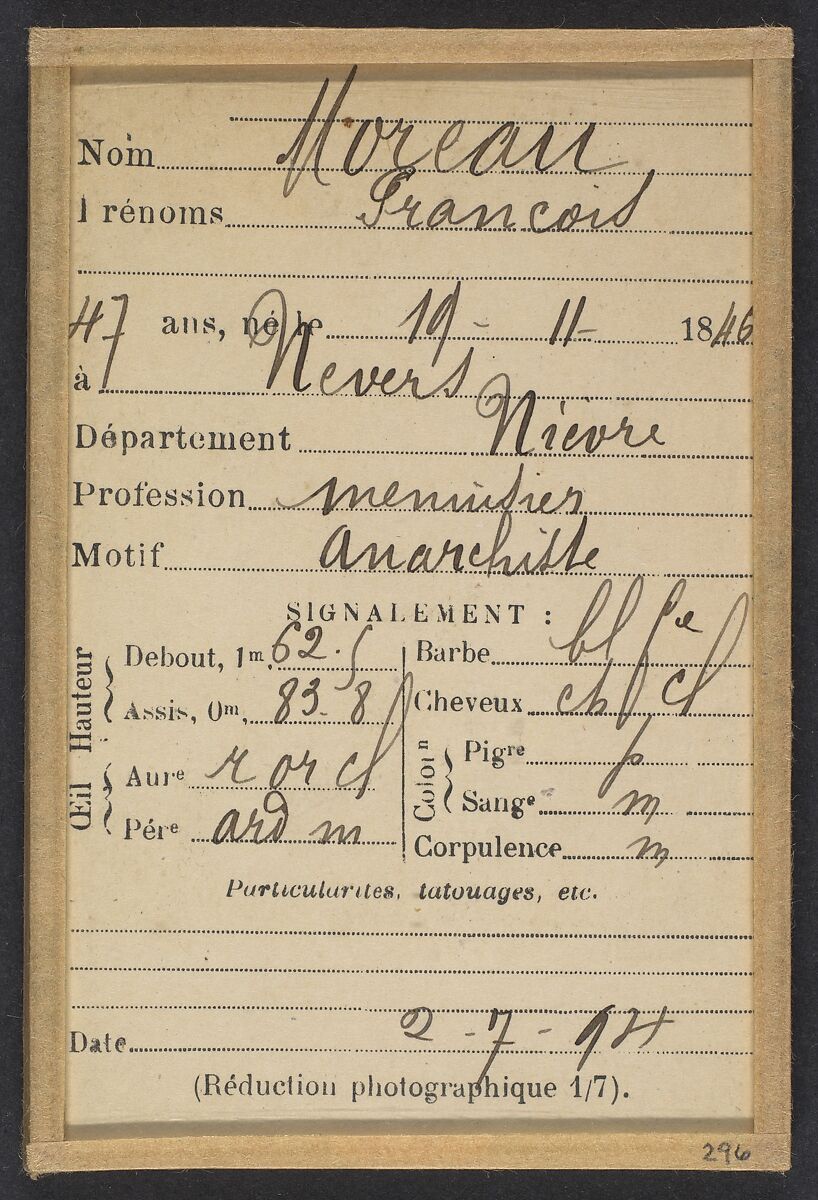 Nom Moreau
Prénoms François
47 ans, né le 19 - 11 - 1846
à Nevers
Département Nièvre
Profession menuisier
Motif anarchiste
SIGNALEMENT :
Hauteur
Debout, 1m, 62.5
Assis, 0m, 83-8
Œil
Aure r or cl
Pére ard m
Barbe bl fe
Cheveux ch cl
Coloron
Pigre p
Sange m
Corpulence m
Particularités, tatouages, etc.
Date 2 - 7 - 94
(Réduction photographique 1/7).
296